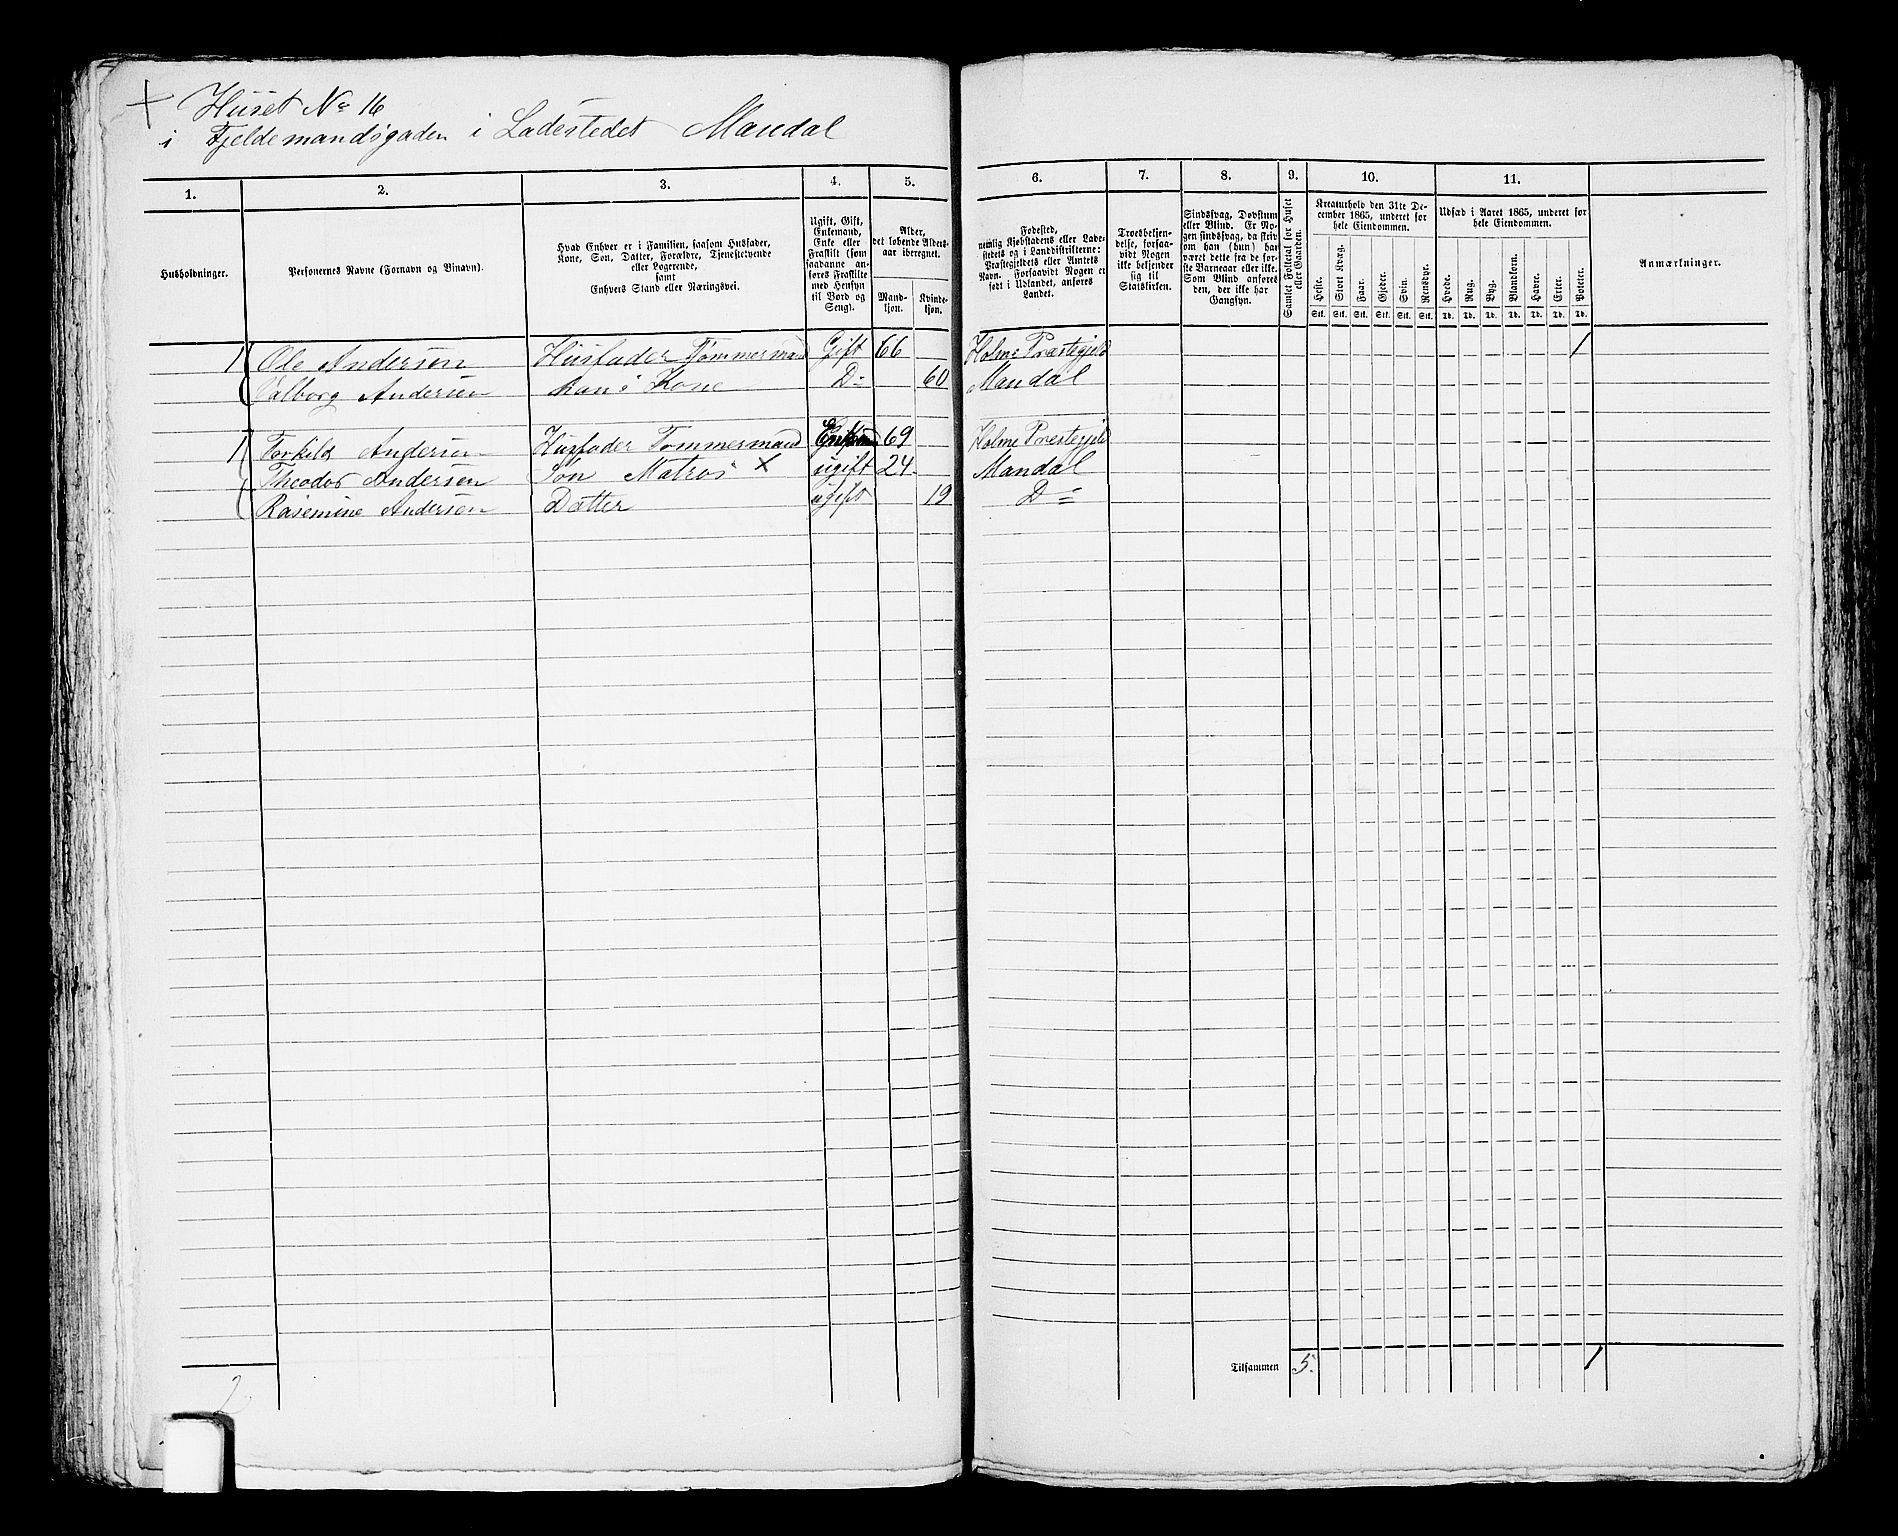 Huset No 16
i Fjeldemandsgaden i Ladestedet Mandal
1. 2. 3. 4. 5. 6. 7. 8. 9. 10. 11.
Husholdninger.
Personernes Navne (Fornavn og Binavn).
Hvad Enhver er i Familien, saasom Husfader,
Kone, Søn, Datter, Forældre, Tjenestetyende
eller Logerende,
samt
Enhvers Stand eller Næringsvei.
Ugift, Gift,
Enkemand,
Enke eller
Fraskilt (som
saadanne an-
føres Fraskilte
med Hensyn
til Bord og
Seng).
Alder,
det løbende Alders-
aar iberegnet.
Mand-
kjøn.
Kvinde-
kjøn.
Fødested,
nemlig Kjøbstadens eller Lade-
stedets og i Landdistrikterne:
Præstegjeldets eller Amtets
Navn. Forsaavidt Nogen er
født i Udlandet, anføres
Landet.
Troesbekjen-
delse, forsaa-
vidt Nogen
ikke bekjender
sig til
Statskirken.
Sindssvag, Døvstum
eller Blind. Er No-
gen sindssvag, da skriv
om han (hun) har
været dette fra de før-
ste Barneaar eller ikke.
Som Blind anføres
den, der ikke har
Gangsyn.
Samlet Folketal for Huset
eller Gaarden.
Kreaturhold den 31te De-
cember 1865, underet for
hele Eiendommen.
Heste. Stort Kvæg. Faar. Gjeder. Svin. Rensdyr.
Stk. Stk. Stk. Stk. Stk. Stk.
Udsæd i Aaret 1865, underet for
hele Eiendommen.
Hvede. Rug. Byg. Blandkorn. Havre. Erter. Poteter.
Td. Td. Td. Td. Td. Td. Td.
Anmærkninger.
1 Ole Andersen Husfader Tømmermand Gift 66 Holme Præstegjeld 1
Valborg Andersen hans Kone D= 60 Mandal
1 Torkild Andersen Husfader Tømmermand Enkem 69 Holme Præstegjeld
Theodor Andersen Søn Matros × ugift 24 Mandal
Rasemine Andersen Datter ugift 19 D=
Tilsammen 5. 1
2